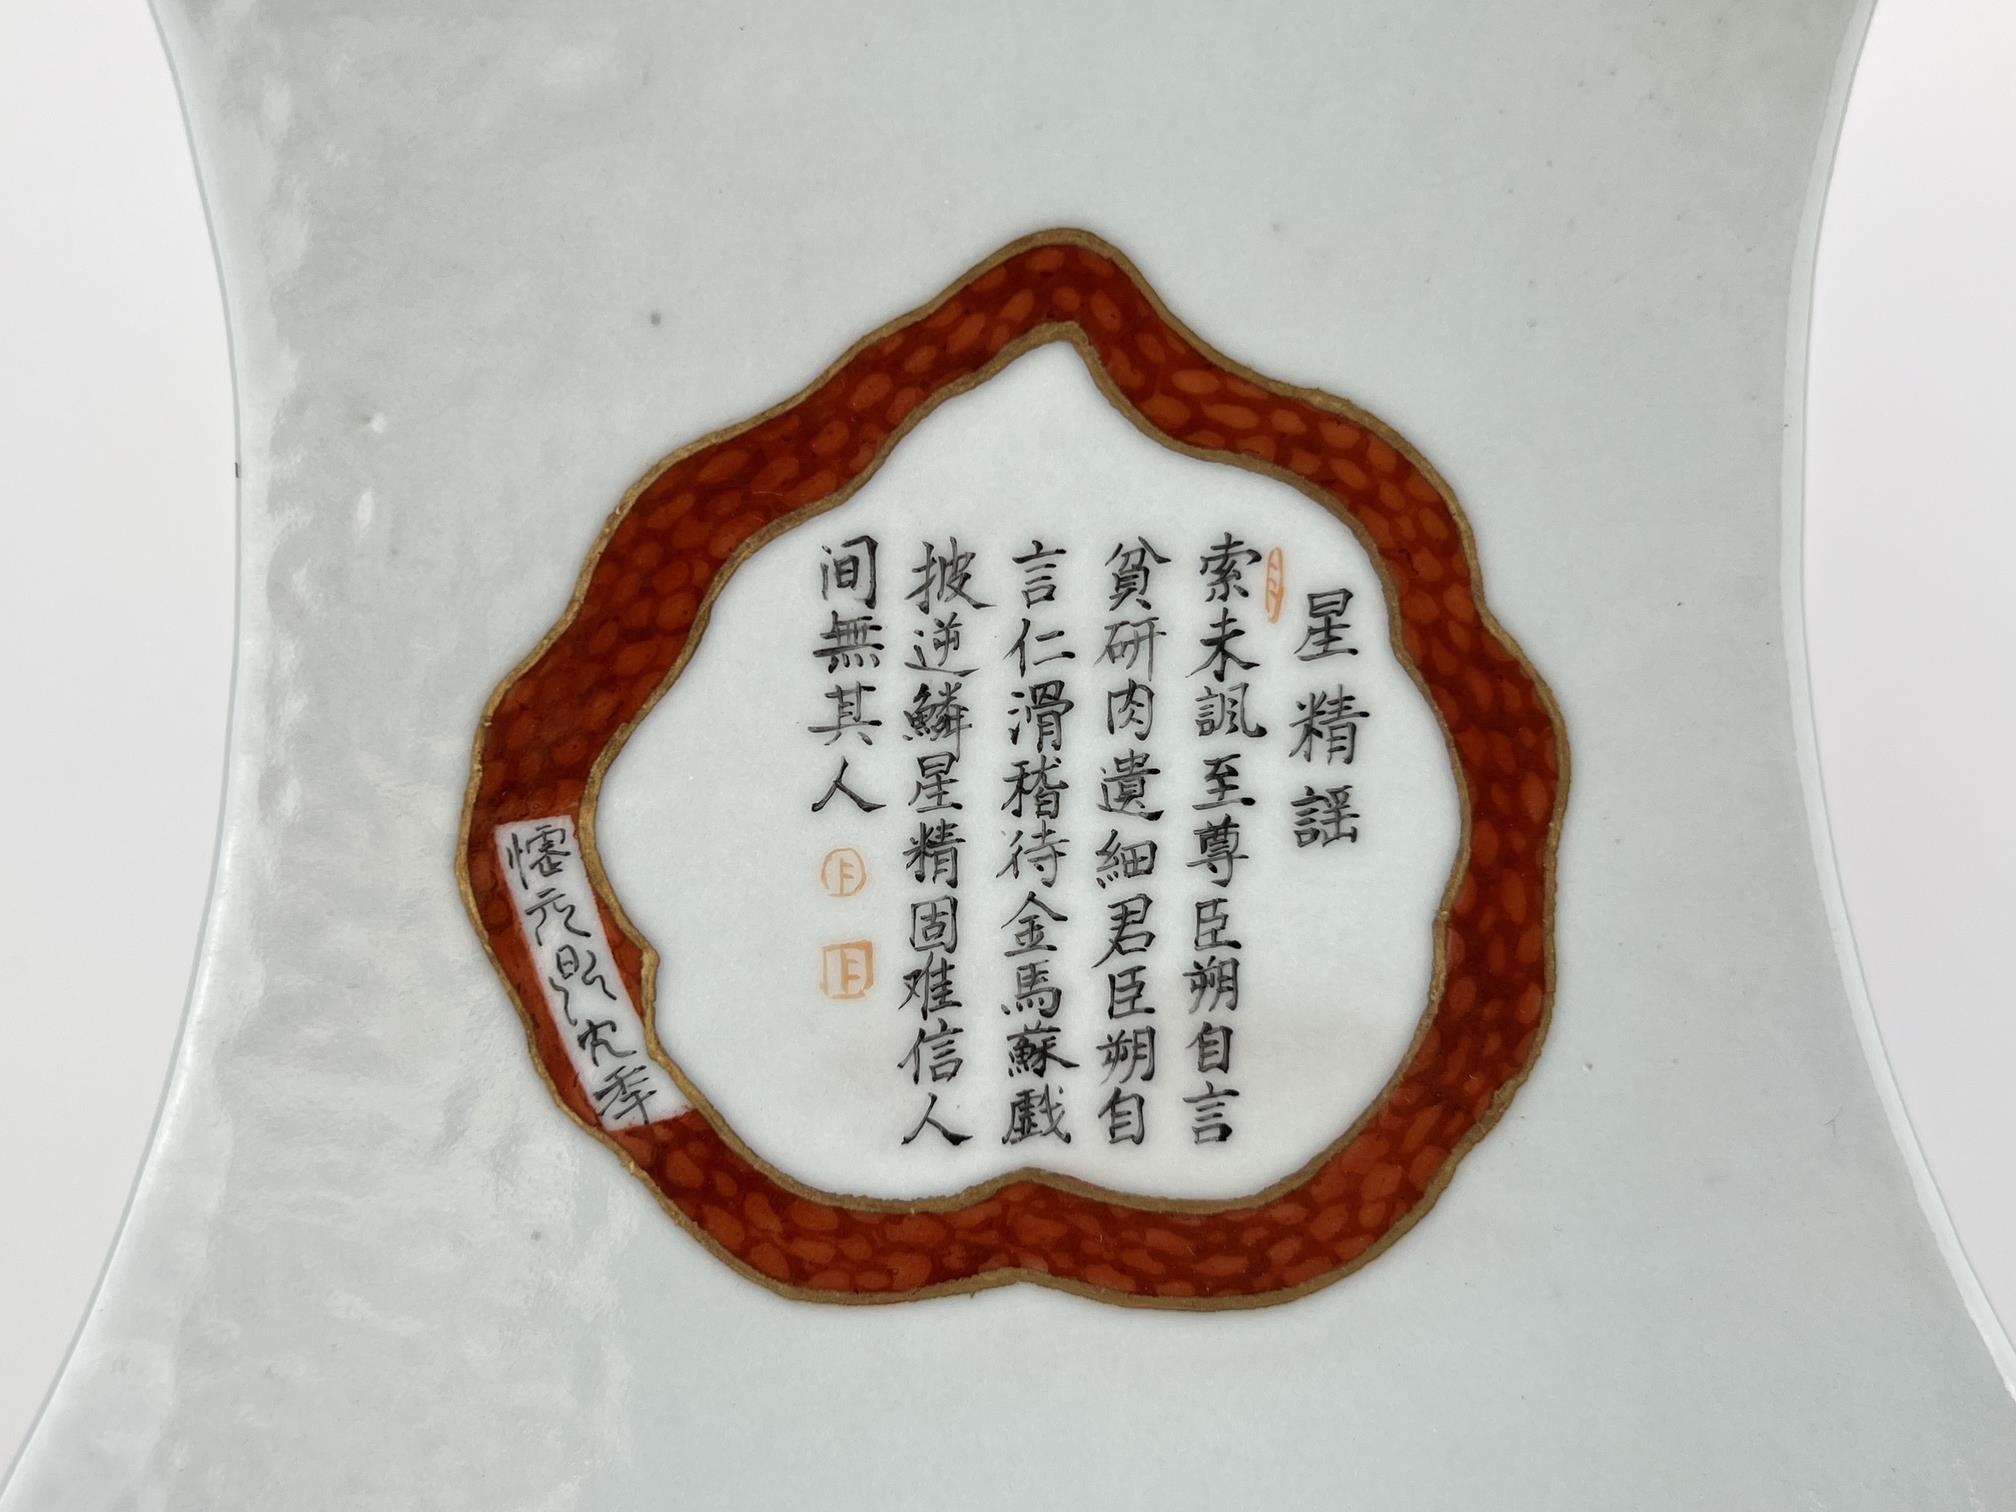 星精謡
索未諷至尊臣朔自言
貧研肉遺細君臣朔自
言仁滑稽待金馬蘇戯
披逆鱗星精固难信人
间無其人